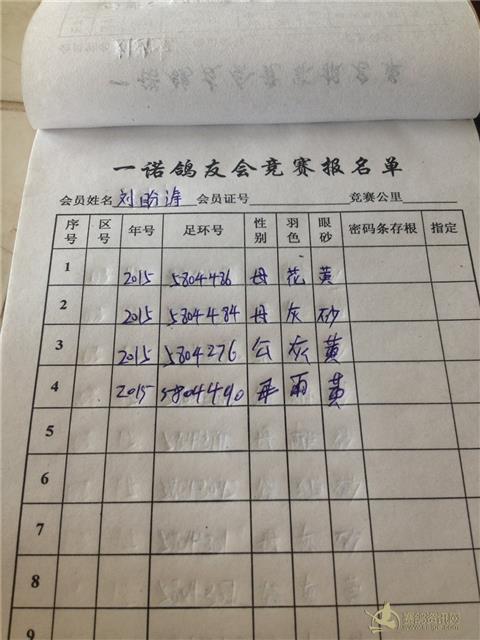 一诺鸽友会竞赛报名单
会员姓名 刘 涛 会员证号 竞赛公里
序号 区号 年号 足环号 性别 羽色 眼砂 密码条存根 指定
1 2015 5804486 母 花 黄
2 2015 5804484 母 灰 砂
3 2015 5804276 公 灰 黄
4 2015 5804490 雨 黄
5
6
7
8
9
赛鸽资讯网